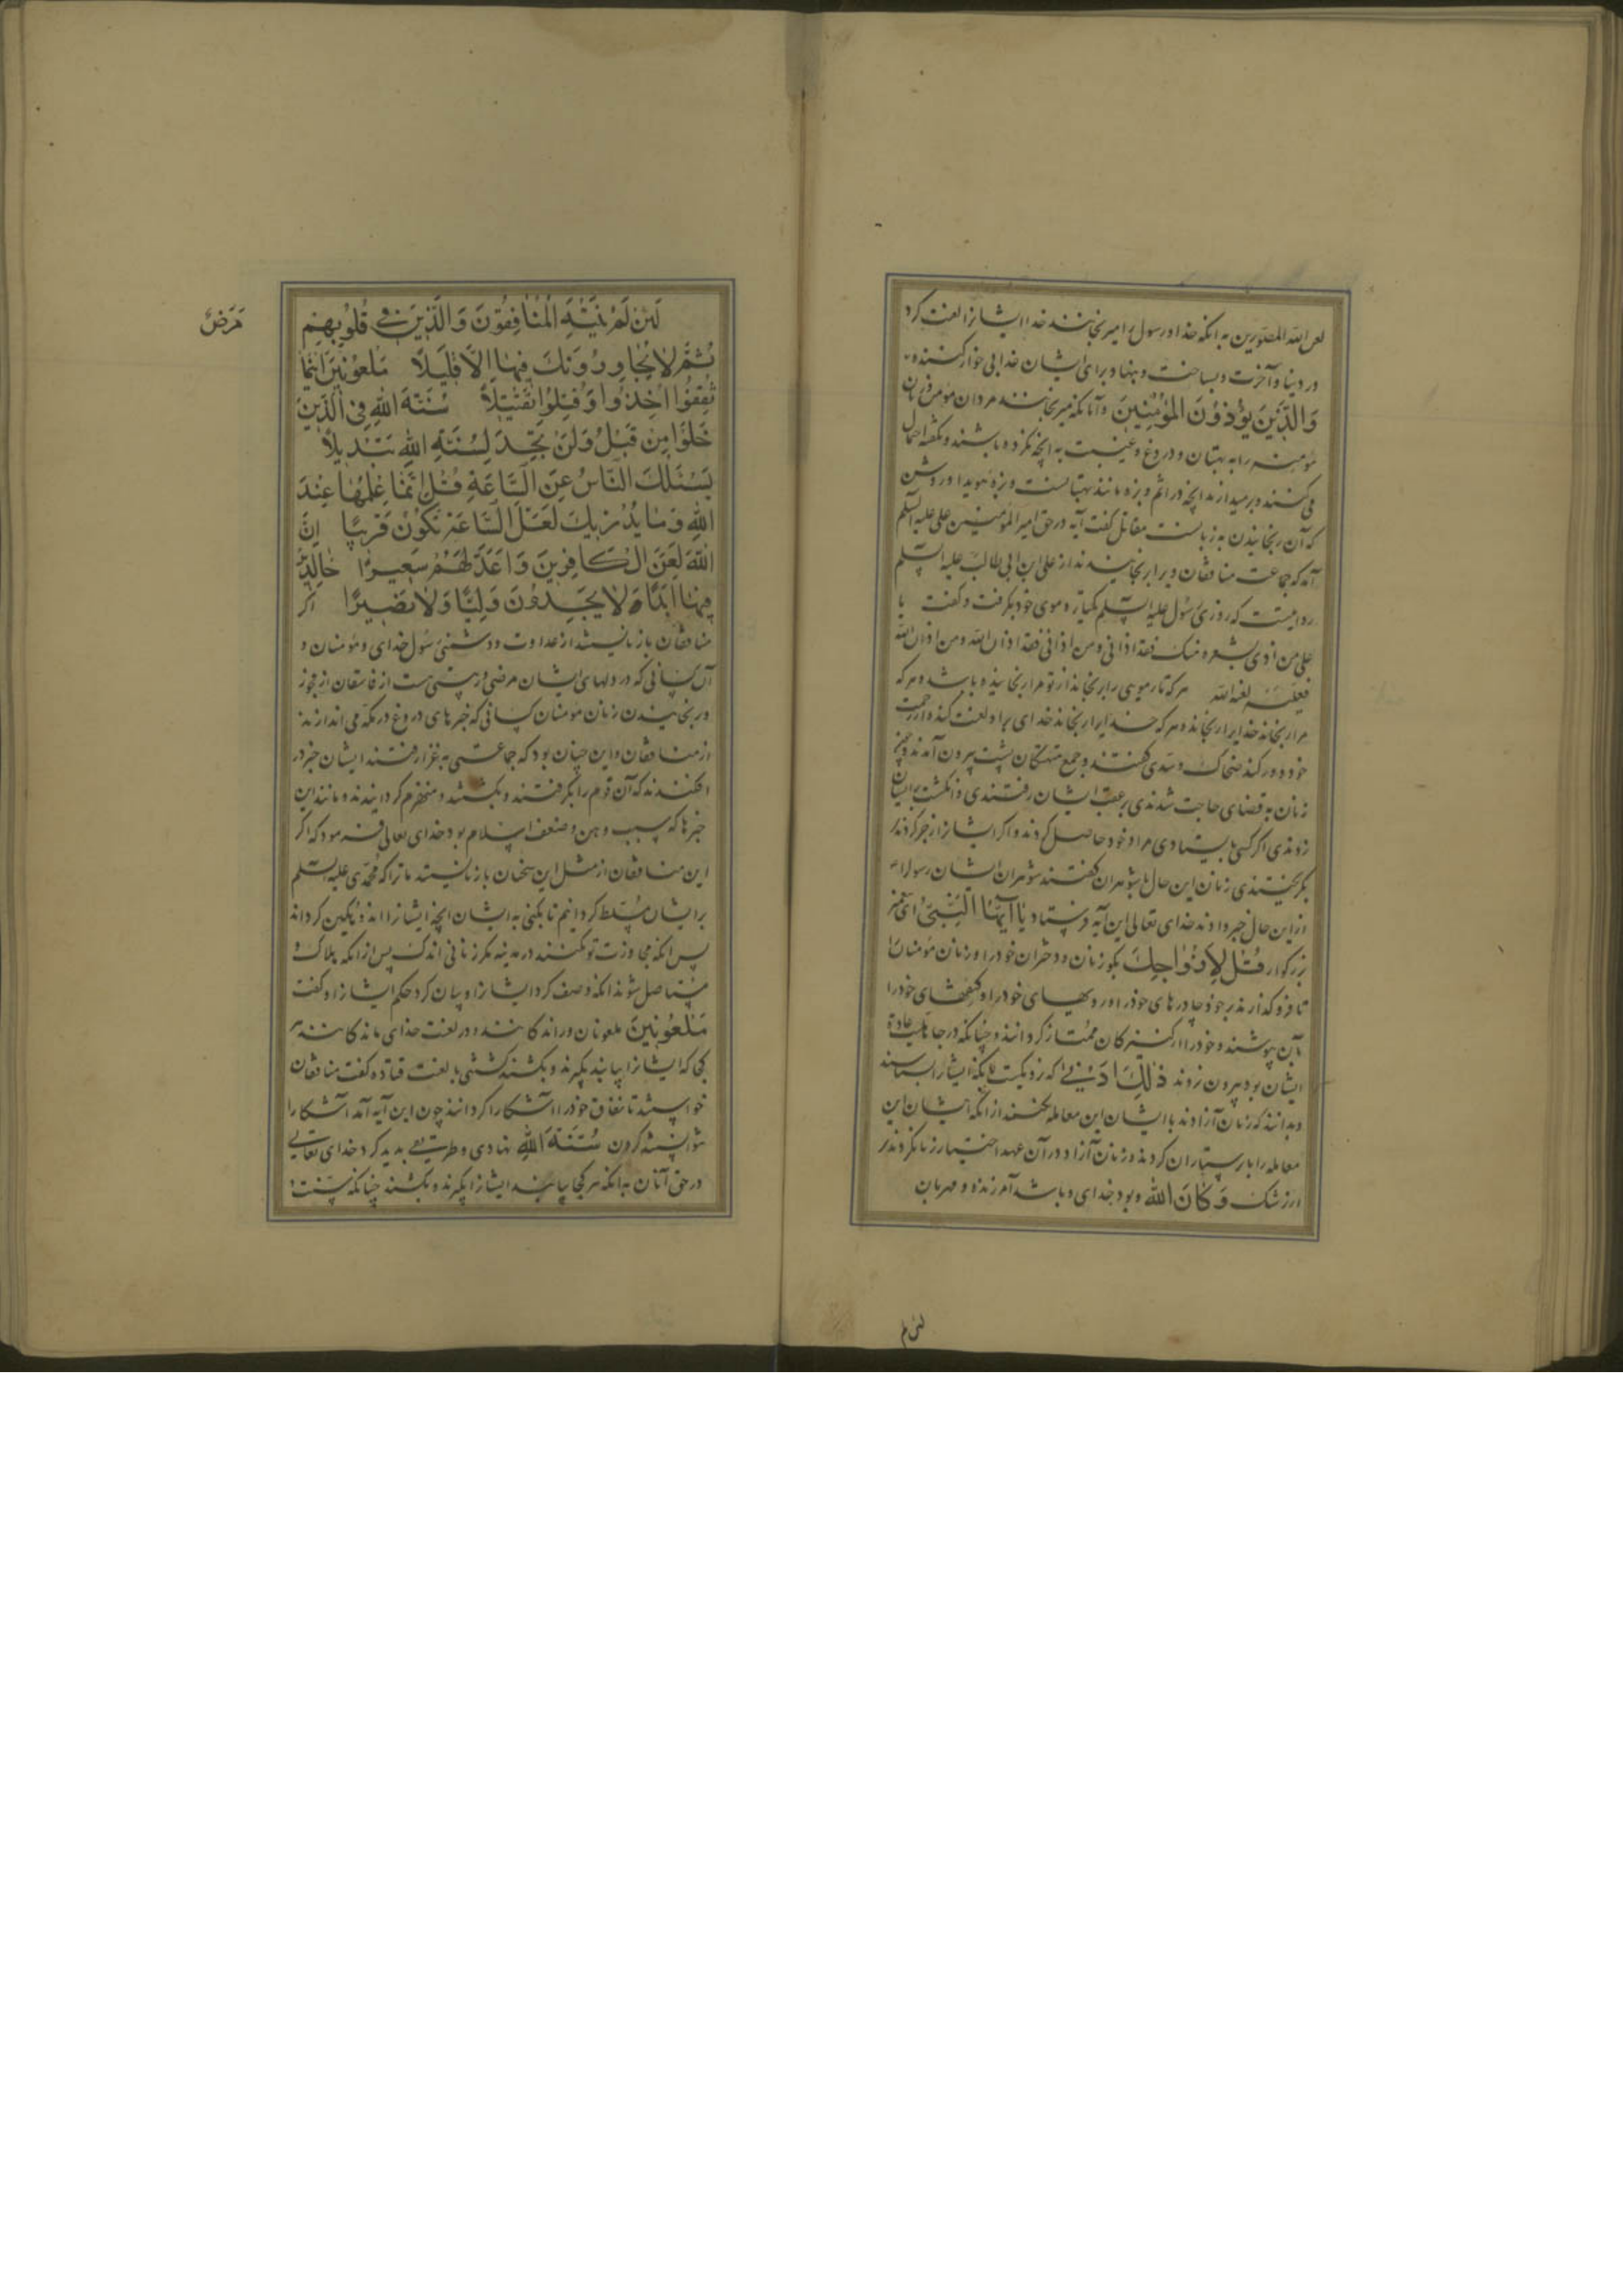 لعن الله المصورین به آنکه خدا و رسول را میرنجانند خدا ایشانرا لعنت کرد
در دنیا و آخرت و بساخت و بنهاد برای ایشان عذابی خوارکننده
وَالَّذِینَ یُؤْذُونَ الْمُؤْمِنِینَ و آنانکه میرنجانند مردان مؤمن و زنان
مؤمنه را به بهتان و دروغ و غیبت به آنچه نکرده باشند و نگفته احتمال
می کنند و برمیدارند آنچه در اثم و بزه مانند بهتانست و بزهٔ هویدا و روشن
که آن رنجانیدن به زبانست مقاتل گفت آیه در حق امیر المؤمنین علی علیه السلم
آمد که جماعت منافقان ویرا رنجانیدند از علی بن ابی طالب علیه السلم
روایتست که روزی رسول علیه السلم یکتاره موی خود بگرفت و گفت یا
علی من اذی شعرة منک فقد اذانی و من اذانی فقد اذی الله و من اذی الله
فعلیه لعنة الله هر که تار مویی را برنجاند از تو مرا رنجانیده باشد و هر که
مرا رنجاند خدایرا رنجانده و هر که خدایرا رنجاند خدای برا و لعنت کند و از رحمت
خود دور کند ضحاک و سدی گفتند و جمع متهتکان شب بیرون آمدندی چون
زنان به قضای حاجت شدندی بر عقب ایشان رفتندی و انگشت بر ایشان
زدندی اگر کسی بایستادی مراد خود حاصل کردند و اگر ایشانرا زجر کردند
بگریختندی زنان این حال با شوهران گفتند شوهران ایشان رسول را
از این حال خبر دادند خدای تعالی این آیه فرستاد یَا أَیُّهَا النَّبِیُّ ای پیغمبر
بزرگوار قُلْ لِأَزْوَاجِكَ بگو زنان و دختران خود را و زنان مؤمنان را
تا فرو گذارند بر خود چادرهای خود را و رویهای خود را و کفهای خود را
بآن بپوشند و خود را از کنیزکان ممتاز گردانند و چنانکه در جاهلیت عادة
ایشان بود بیرون نروند ذَلِكَ أَدْنَى که نزدیکست بآنکه ایشانرا بشناسند
و بدانند که زنان آزادند با ایشان این معامله نکنند از آنکه ایشان این
معامله را با پرستاران کردند و زنان آزاد در آن عهد اختیار زنا نکردند
از رشک وَكَانَ اللهُ و بود خدای و باشد آمرزنده و مهربان
لئن لم
لَئِنْ لَمْ یَنْتَهِ الْمُنَافِقُونَ وَالَّذِینَ فِی قُلُوبِهِمْ
مَرَضٌ
ثُمَّ لَا یُجَاوِرُونَكَ فِیهَا إِلَّا قَلِیلًا مَلْعُونِینَ أَیْنَمَا
ثُقِفُوا أُخِذُوا وَقُتِّلُوا تَقْتِیلًا سُنَّةَ اللهِ فِی الَّذِینَ
خَلَوْا مِنْ قَبْلُ وَلَنْ تَجِدَ لِسُنَّةِ اللهِ تَبْدِیلًا
یَسْئَلُكَ النَّاسُ عَنِ السَّاعَةِ قُلْ إِنَّمَا عِلْمُهَا عِنْدَ
اللهِ وَمَا یُدْرِیكَ لَعَلَّ السَّاعَةَ تَكُونُ قَرِیبًا إِنَّ
اللهَ لَعَنَ الْكَافِرِینَ وَأَعَدَّ لَهُمْ سَعِیرًا خَالِدِینَ
فِیهَا أَبَدًا لَا یَجِدُونَ وَلِیًّا وَلَا نَصِیرًا اگر
منافقان باز نایستند از عداوت و دشمنی رسول خدای و مؤمنان و
آن کسانی که در دلهای ایشان مرضی و ریبتی هست از فاسقان از فجور
و رنجانیدن زنان مؤمنان کسانی که خبرهای دروغ در مکه می اندازند
از منافقان و این چنان بود که جماعتی به غزا رفتند ایشان خبر در
افکندند که آن قوم را بگرفتند و بکشتند و منهزم گردانیدند و مانند این
خبرها که سبب وهن و ضعف اسلام بود خدای تعالی فرمود که اگر
این منافقان از مثل این سخنان باز نایستند ما ترا که محمدی علیه السلم
بر ایشان مسلط گردانیم تا بکنی به ایشان آنچه ایشانرا اندوهگین گرداند
پس آنکه مجاورت تو نکنند در مدینه مگر زمانی اندک پس از آنکه هلاک و
مستأصل شوند آنکه وصف کرد ایشانرا و بیان کرد حکم ایشانرا و گفت
مَلْعُونِینَ ملعونان و راندکانند و در لعنت خدای ماندکانند
کجا که ایشانرا بیابند بگیرند و بکشند کشتنی با لعنت قتاده گفت منافقان
خواستند تا نفاق خود را آشکارا گردانند چون این آیه آمد آشکارا
نتوانستند کردن سُنَّةَ اللهِ نهادی و طریقتی پدید کرد خدای تعالی
در حق آنان به آنکه هر کجا بیابند ایشانرا بگیرند و بکشند چنانکه سنت